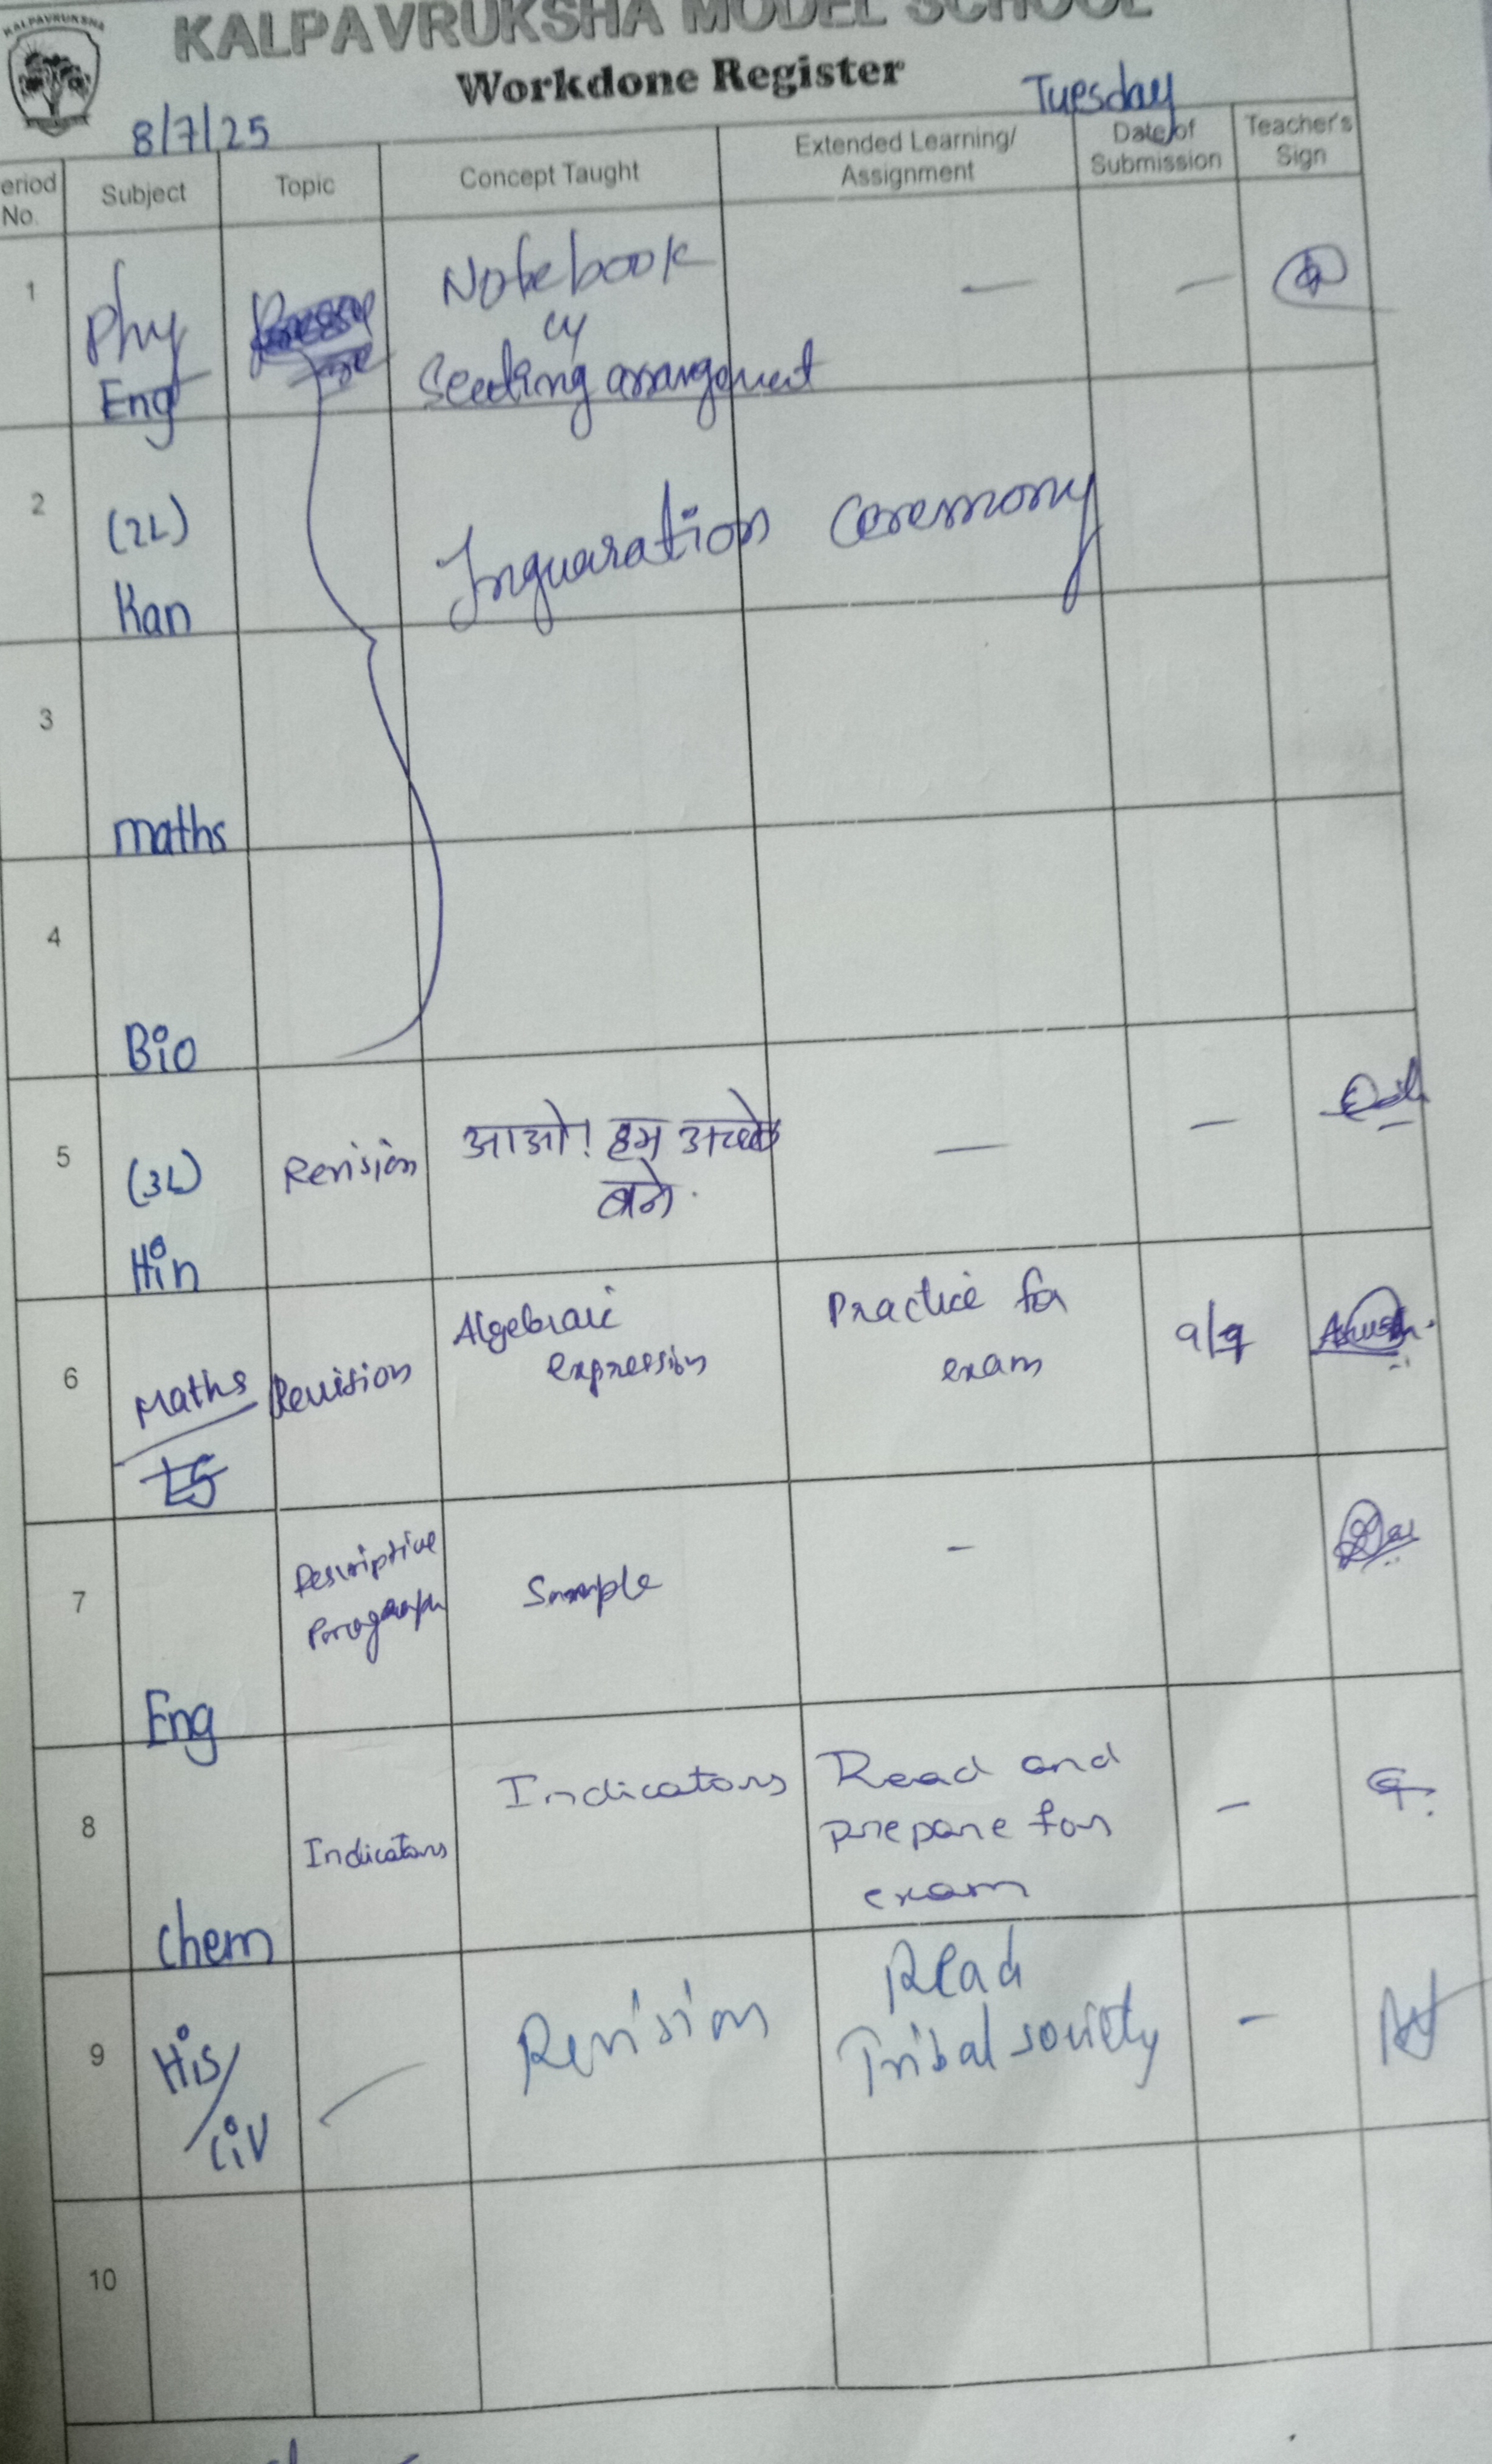 KALPAVRUKSHA
KALPAVRUKSHA MODEL SCHOOL
Workdone Register
8/7/25
Tuesday
eriod No. Subject Topic Concept Taught Extended Learning/ Assignment Date of Submission Teacher's Sign
1 Phy Notebook — —
Eng Seeting arrangement
2 (2L) Inguaration Ceremony
Kan
3
maths
4
Bio
5 (3L) Revision आओ! हम अच्छे — —
Hin बने.
6 Maths Revision Algebraic Practice for 9/7
expression exam
7 Descriptive Sample -
Paragraph
Eng
8 Indicators Indicators Read and -
prepare for
exam
chem
9 His/ Revision Read -
Civ Tribal society
10